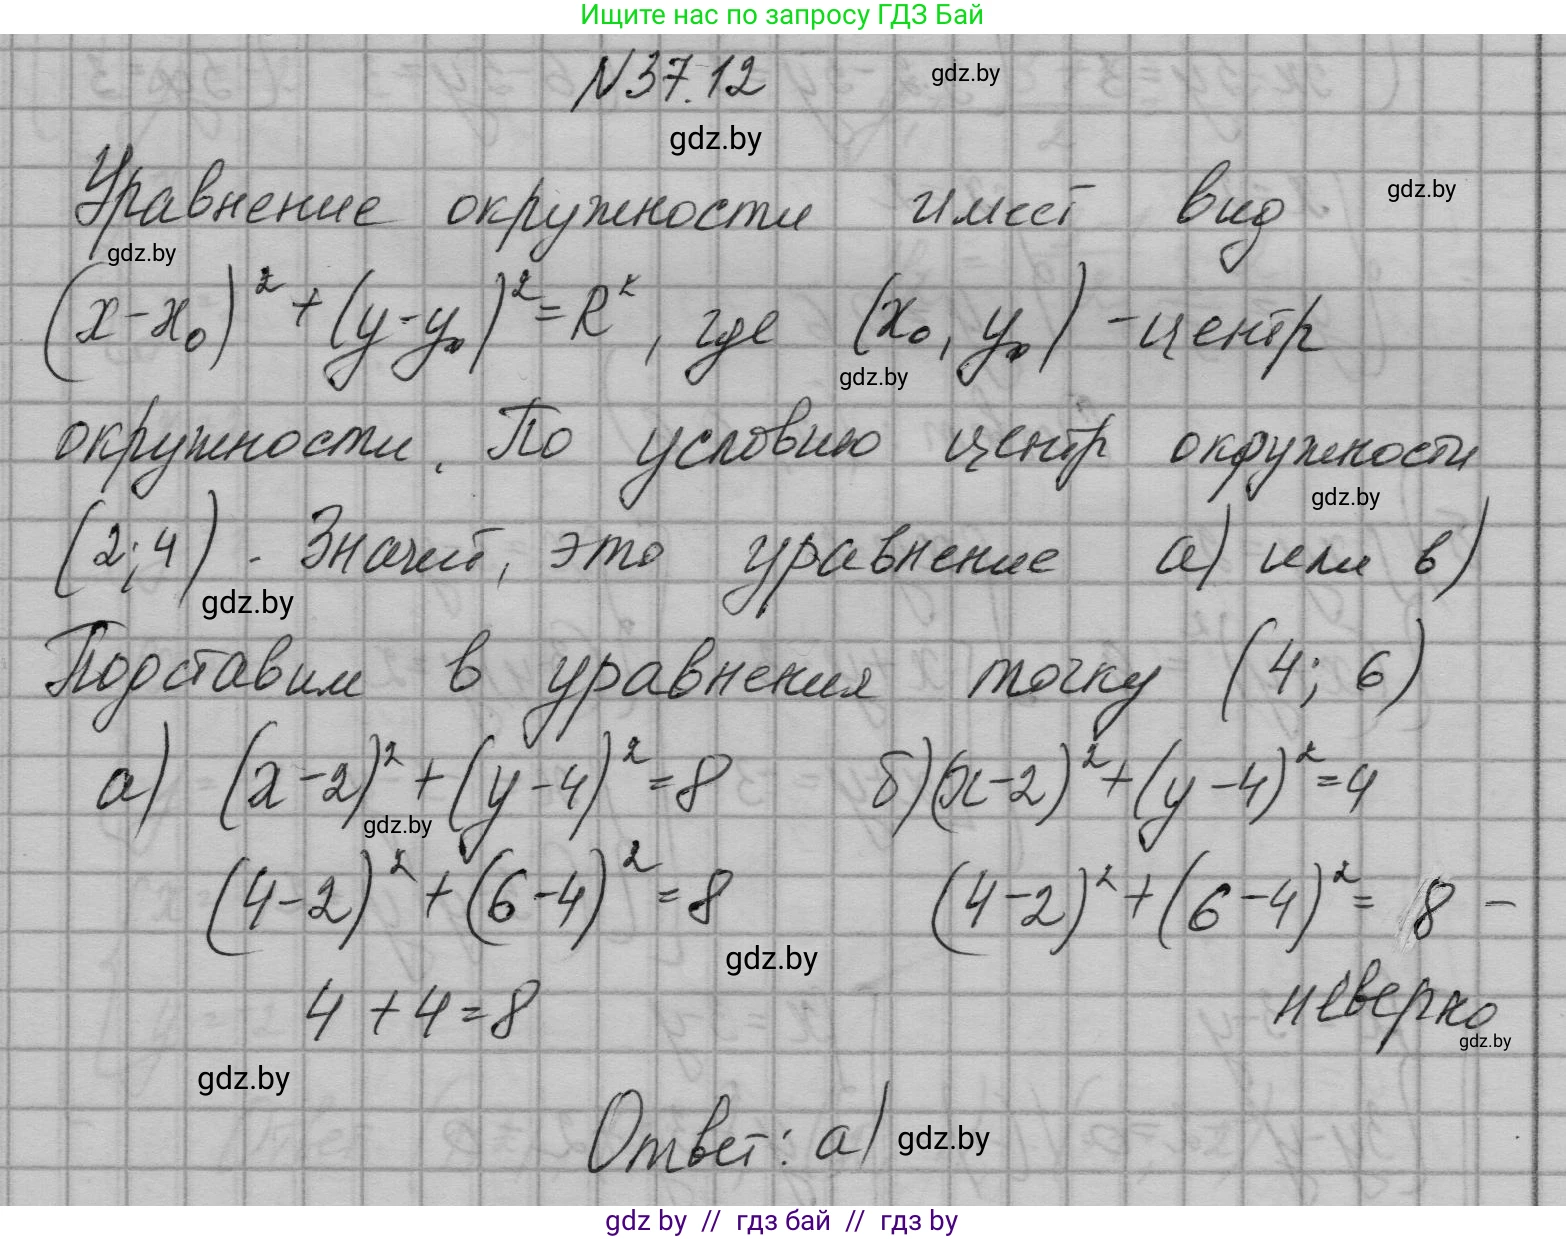 Ищите нас по запросу ГДЗ Бай
N37.12
gdz.by
gdz.by
Уравнение окружности имеет вид
gdz.by
gdz.by
(x-x₀)²+(y-y₀)²=R², где (x₀, y₀) - центр
gdz.by
окружности. По условию центр окружности
gdz.by
(2;4). Значит, это уравнение а) или в)
gdz.by
Подставим в уравнения точку (4; 6)
а) (x-2)²+(y-4)²=8 б)(x-2)²+(y-4)²=4
gdz.by
(4-2)²+(6-4)²=8 (4-2)²+(6-4)²= 8 -
gdz.by
4+4=8 неверно
gdz.by
gdz.by
Ответ: а)
gdz.by
gdz by // гдз бай // гдз by